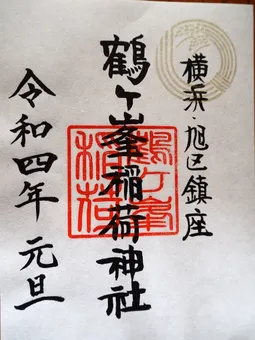 横浜・旭区鎮座
鶴ヶ峯稲荷神社
令和四年 元旦
鶴ヶ峯
稲荷